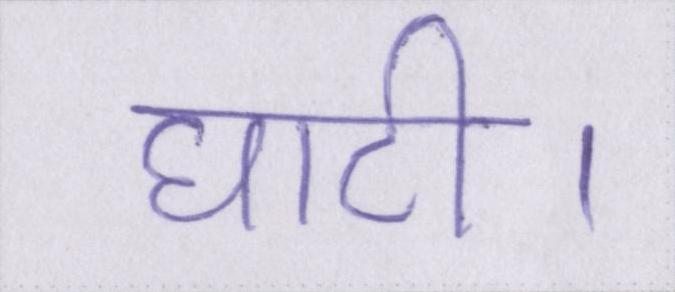 घाटी।